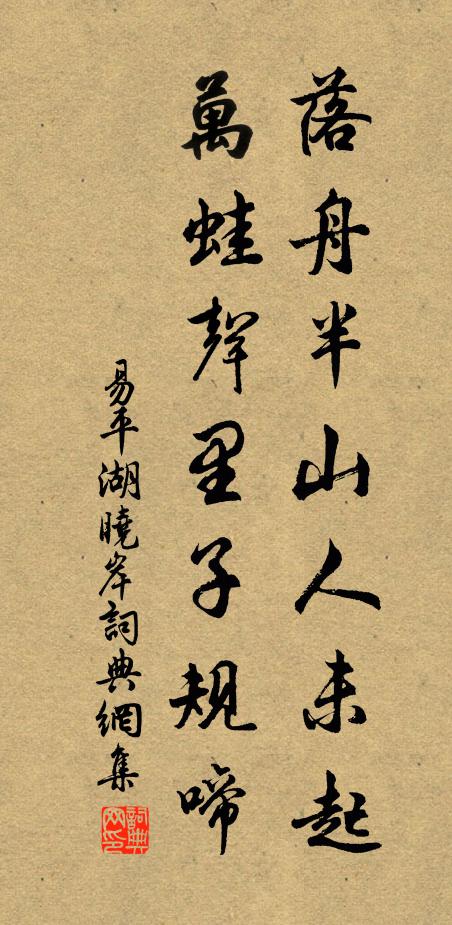 落舟半山人未起
萬蛙聲里子規啼
易平湖曉岸詞典網集
詞典網印